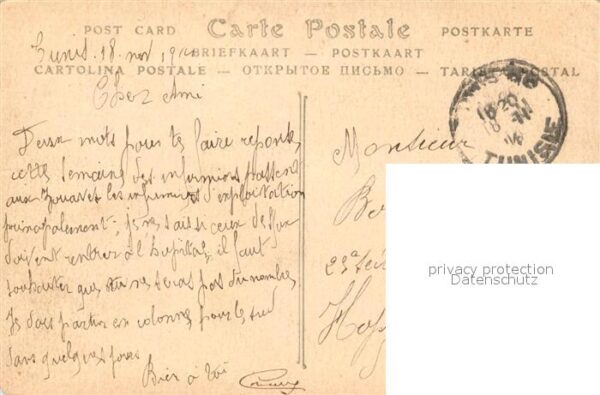 POST CARD Carte Postale POSTKARTE
BRIEFKAART — POSTKAART
CARTOLINA POSTALE — ОТКРЫТОЕ ПИСЬМО — TARJETA POSTAL
Tunis. 18. nov
Cher Ami
Deux mots pour te faire reponse
cette semaine des infirmiers passent
aux zouaves les infirmiers d'exploitation
principalement; je ne sais si ceux de
doivent rentrer à l'hopital, il faut
souhaiter que tu ne seras pas du nombre
Je dois partir en colonne pour le sud
dans quelques jours
Bien à toi
Monsieur
TUNISIE
privacy protection
Datenschutz